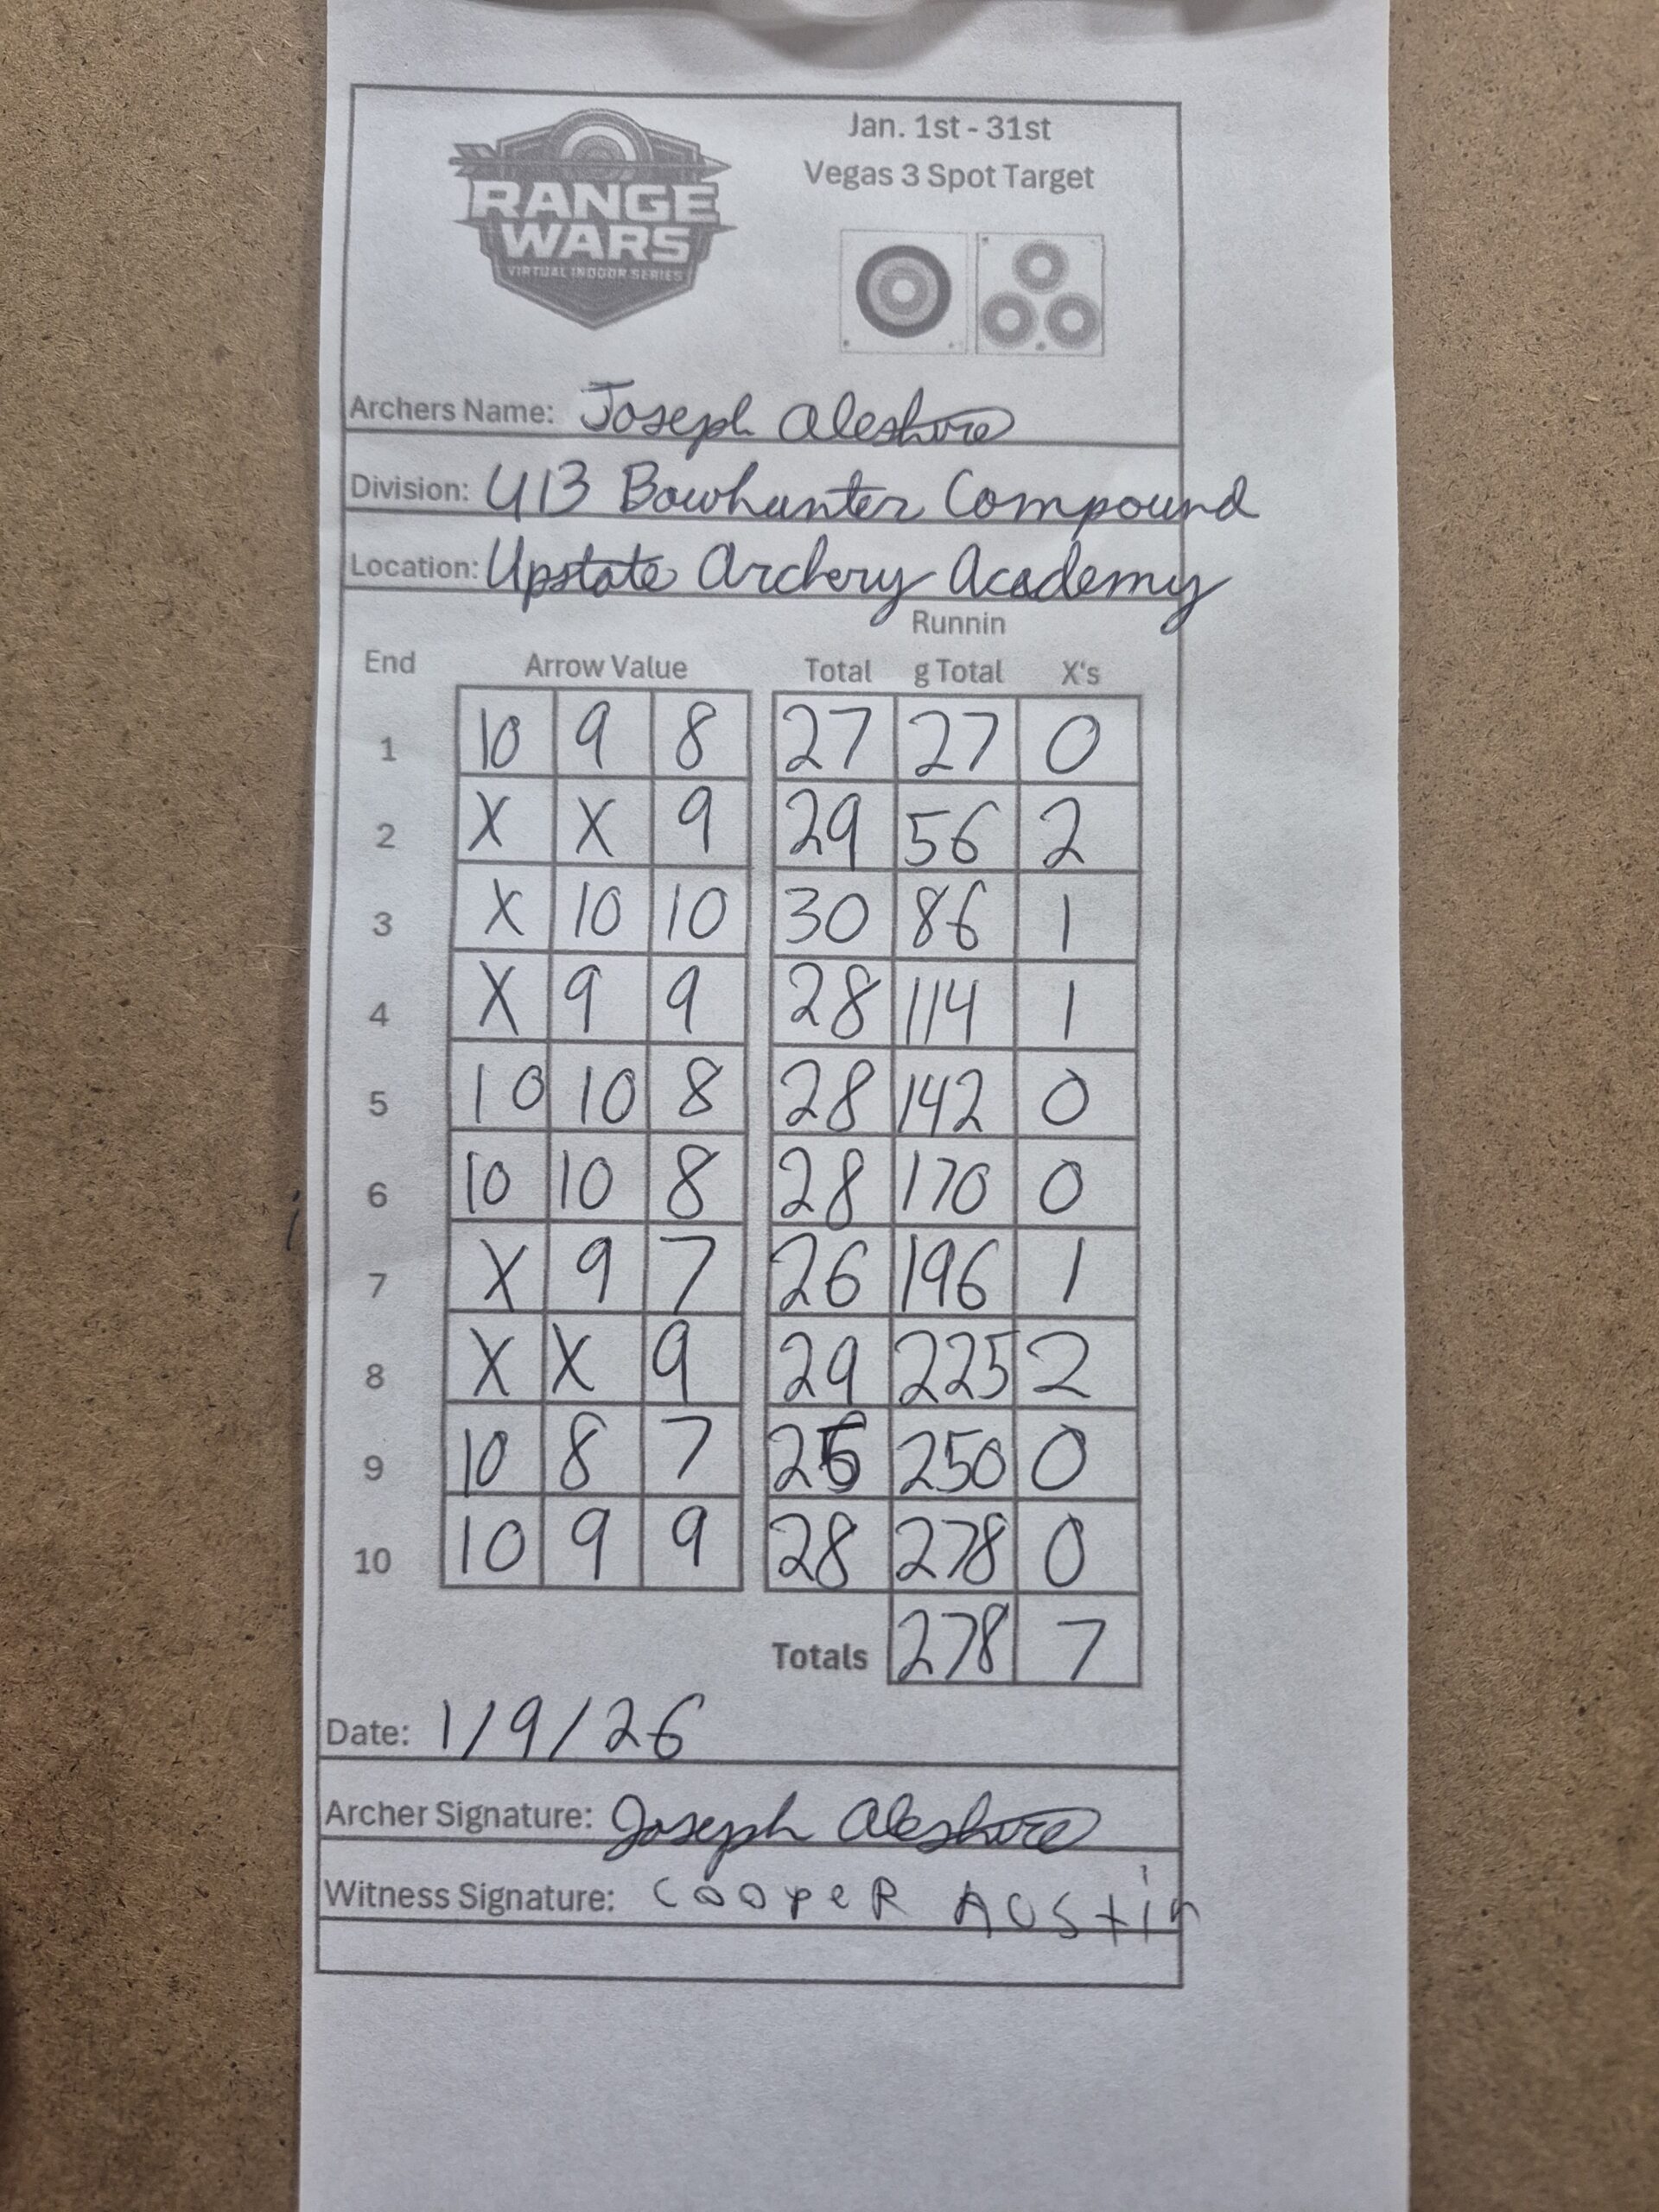 RANGE
WARS
VIRTUAL INDOOR SERIES
Jan. 1st - 31st
Vegas 3 Spot Target
Archers Name: Joseph Aleshire
Division: U13 Bowhunter Compound
Location: Upstate Archery Academy
Runnin
End Arrow Value Total g Total X's
1 10 9 8 27 27 0
2 X X 9 29 56 2
3 X 10 10 30 86 1
4 X 9 9 28 114 1
5 10 10 8 28 142 0
6 10 10 8 28 170 0
7 X 9 7 26 196 1
8 X X 9 29 225 2
9 10 8 7 25 250 0
10 10 9 9 28 278 0
Totals 278 7
Date: 1/9/26
Archer Signature: Joseph Aleshire
Witness Signature: CooPeR AUStin